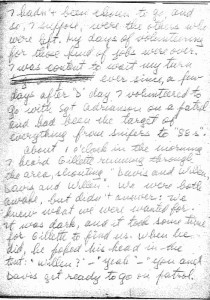 I hadn't been chosen to go, and
so, I suppose, were the others who
were left. My days of volunteering
for these kind of jobs were over.
I was content to wait my turn
ever since, a few
days after "D" day I volunteered to
go with Sgt Adrianson on a patrol
and had been the target of
everything from snipers to "88's".
About 1 o'clock in the morning
I heard Gillette running through
the area, shouting, "Davis and Willen,
Davis and Willen". We were both
awake, but didn't answer: We
knew what we were wanted for -
it was dark, and it took some time
for Gillette to find us. When he
did, he poked his head in the
tent: "Willen?" - "yeah" - "you and
Davis get ready to go on patrol.